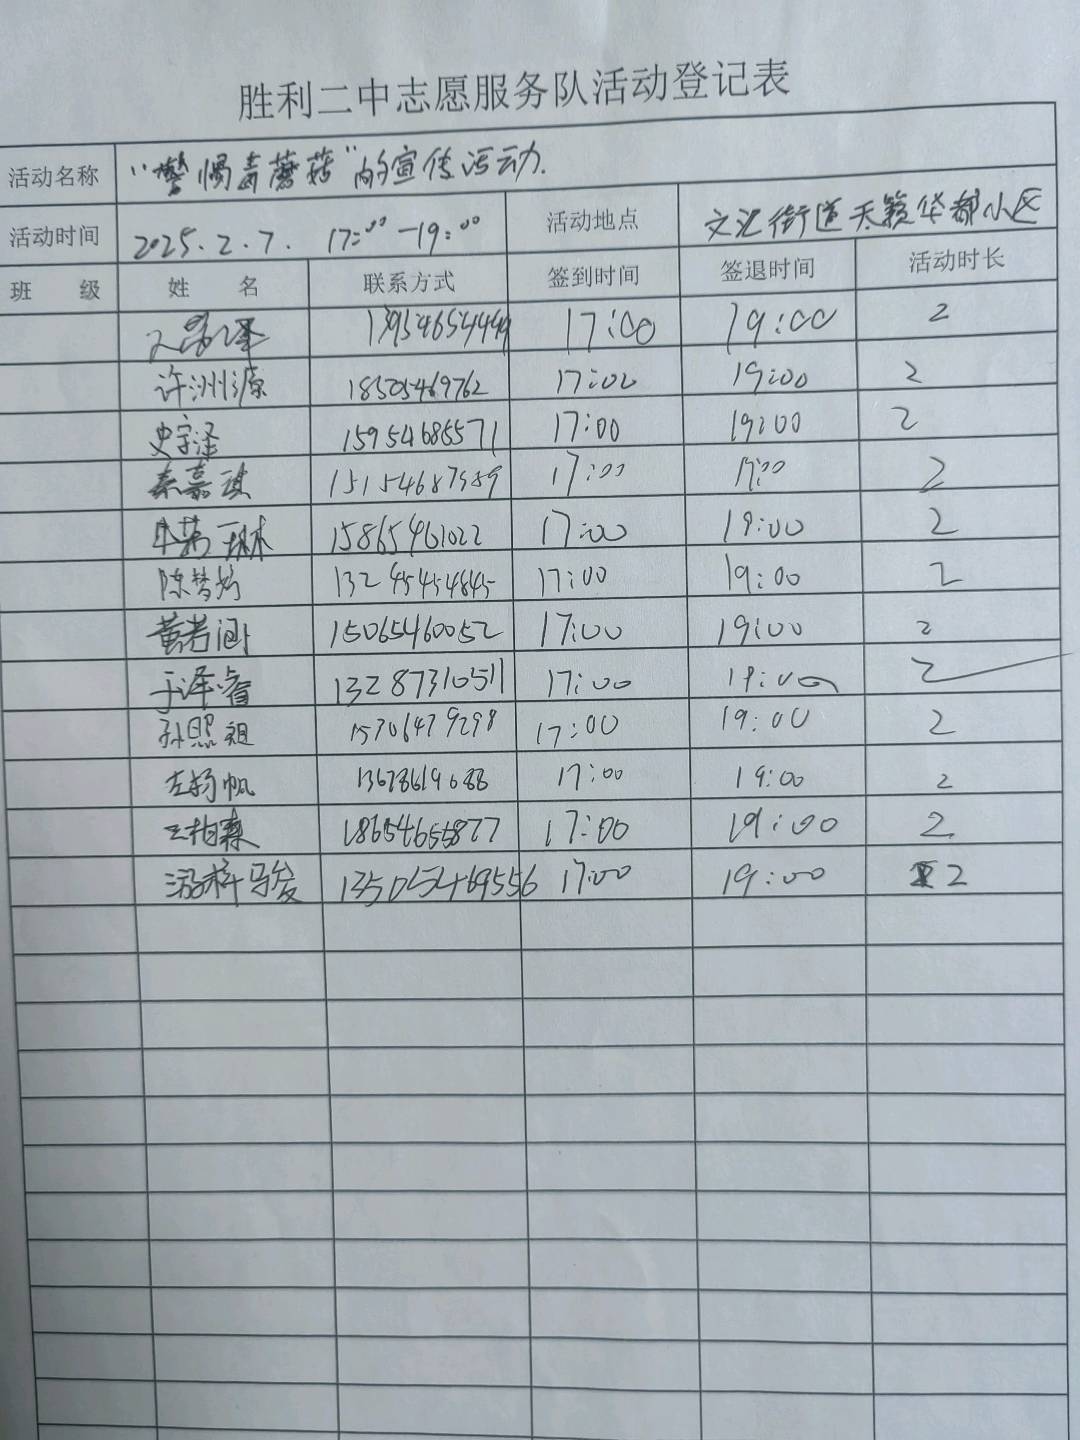 胜利二中志愿服务队活动登记表
活动名称 “警惕毒蘑菇”的宣传活动.
活动时间 2025.2.7. 17:00-19:00 活动地点 文汇街道天籁华都小区
班 级 姓 名 联系方式 签到时间 签退时间 活动时长
13954654449 17:00 19:00 2
许洲源 18505469762 17:00 19:00 2
史宇泽 15954685571 17:00 19:00 2
秦嘉琪 15154687589 17:00 17:00 2
15865461022 17:00 19:00 2
陈梦婷 13245454845 17:00 19:00 2
黄若涵 15065460052 17:00 19:00 2
于泽睿 13287310511 17:00 19:00 2
孙照祖 15706479298 17:00 19:00 2
左扬帆 13678619688 17:00 19:00 2
王柏森 18654655877 17:00 19:00 2
13505469556 17:00 19:00 2